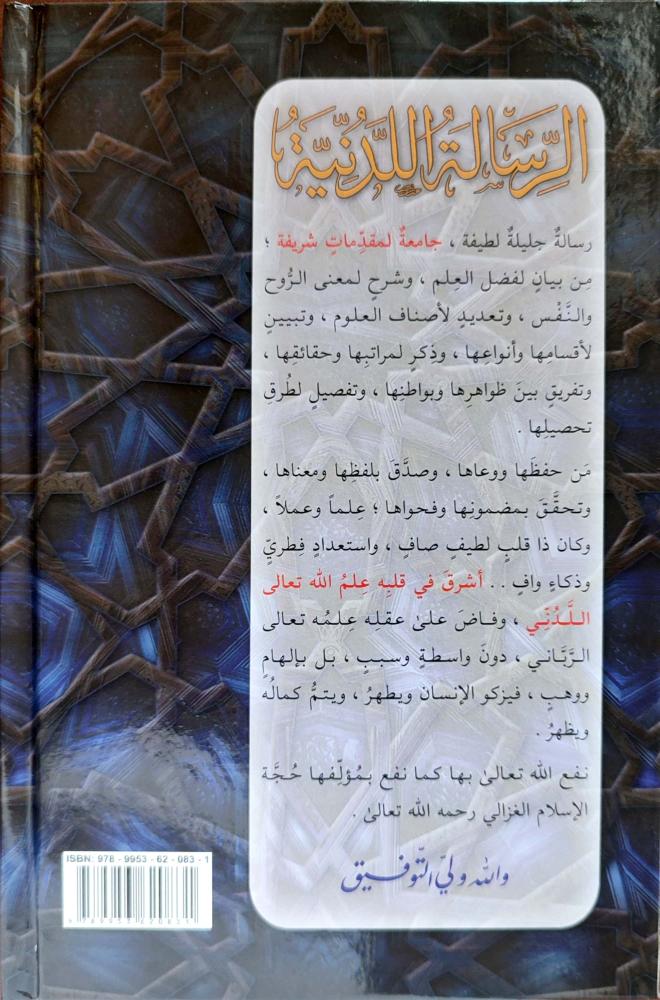 الرِّسَالَةُ اللَّدُنِّيَّةُ
رسالةٌ جليلةٌ لطيفة ، جامعةٌ لمقدِّماتٍ شريفة ؛
مِن بيانٍ لفضل العِلم ، وشرحٍ لمعنى الرُّوح
والنَّفْس ، وتعديدٍ لأصناف العلوم ، وتبيينٍ
لأقسامِها وأنواعِها ، وذِكرٍ لمراتبِها وحقائقِها ،
وتفريقٍ بينَ ظواهرِها وبواطنِها ، وتفصيلٍ لطُرقِ
تحصيلِها .
مَن حفظَها ووعاها ، وصدَّقَ بلفظِها ومعناها ،
وتحقَّقَ بمضمونِها وفحواها ؛ عِلماً وعملاً ،
وكان ذا قلبٍ لطيفٍ صافٍ ، واستعدادٍ فِطريٍّ
وذكاءٍ وافٍ . . أشرقَ في قلبِه علمُ الله تعالى
اللَّدُنِّي ، وفاضَ علىٰ عقلِه عِلمُه تعالى
الرَّبَّاني ، دونَ واسطةٍ وسببٍ ، بل بإلهامٍ
ووهبٍ ، فيزكو الإنسان ويطهرُ ، ويتمُّ كمالُه
ويظهرُ .
نفع الله تعالىٰ بها كما نفع بمُؤلِّفها حُجَّة
الإسلام الغزالي رحمه الله تعالىٰ .
والله وليّ التّوفيق
ISBN: 978 - 9953 - 62 - 083 - 1
9789953620831